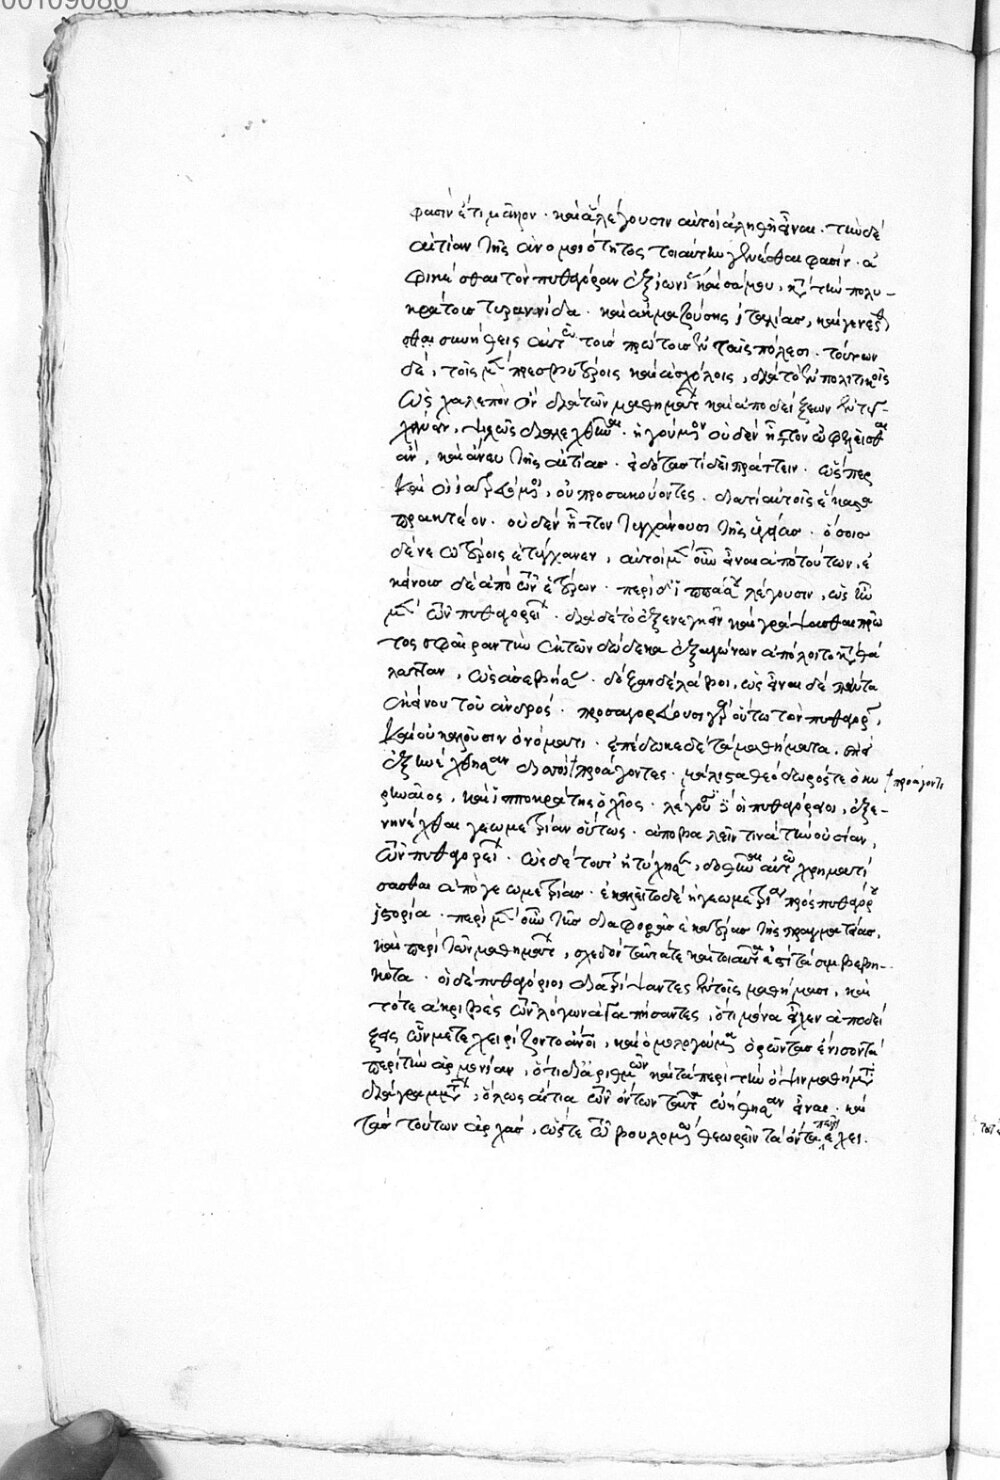 00109080
φασὶν ἔτι μᾶλλον. καὶ ἃ λέγουσιν αὐτοὶ ἀληθῆ εἶναι. τὴν δὲ
αἰτίαν τῆς ἀνομοιότητος τοιαύτην γενέσθαι φασίν. ἀ
φικέσθαι τὸν πυθαγόραν ἐξ ἰωνίας καὶ σάμου, κατὰ τὴν πολυ-
κράτους τυραννίδα. καὶ ἀκμαζούσης ἰταλίας, καὶ γενές
θαι συνήθεις αὐτῶ τοὺς πρώτους ἐν ταῖς πόλεσι. τούτων
δὲ, τοῖς μὲν πρεσβυτέροις καὶ ἀσχόλοις, διὰ τὸ ἐν πολιτικοῖς
ὡς χαλεπὸν ὂν διὰ τῶν μαθημάτων καὶ ἀποδείξεων ἐντυ-
χάνειν, ψιλῶς διαλεχθῆναι. ἡγούμενον οὐδὲν ἧττον ὠφελεῖσθαι
ἂν, καὶ ἄνευ τῆς αἰτίας. εἰδότας τί δεῖ πράττειν. ὥσπερ
καὶ οἱ ἰατρευόμενοι, οὐ προσακούοντες. διατί αὐτοῖς ἕκαστα
πρακτέον. οὐδὲν ἧττον τυγχάνουσι τῆς ὑγείας. ὅσοις
δὲ νεωτέροις ἐτύγχανεν, αὐτοὶ μὲν οὖν εἶναι ἀπὸ τούτων, ἐ
κείνους δὲ ἀπὸ τῶν ἑτέρων. περὶ δ' ἱππάσου λέγουσιν, ὡς ἦν
μὲν τῶν πυθαγορείων. διὰ δὲ τὸ ἐξενεγκεῖν καὶ γράψασθαι πρῶ
τος σφαῖραν τὴν ἐκ τῶν δώδεκα ἑξαγώνων ἀπόλοιτο κατὰ θά
λατταν, ὡς ἀσεβήσας. δόξαν δὲ λάβοι, ὡς εἶναι δὲ πάντα
ἐκείνου τοῦ ἀνδρός. προσαγορεύουσι γὰρ οὕτω τὸν πυθαγόραν,
καὶ οὐ καλοῦσιν ὀνόματι. ἐπέδωκε δὲ τὰ μαθήματα, ἐπεὶ
ἐξενέχθησαν δισσοὶ προάγοντες. μάλιστα θεόδωρός τε ὁ κυ προάγοντε
ρηναῖος, καὶ ἱπποκράτης ὁ χῖος. λέγουσι δὲ οἱ πυθαγόρειοι, ἐξε-
νηνέχθαι γεωμετρίαν οὕτως. ἀποβαλεῖν τινὰ τὴν οὐσίαν,
τῶν πυθαγορείων. ὡς δὲ τοῦτ' ἠτύχησε, δοθῆναι αὐτῶ χρηματί
σασθαι ἀπὸ γεωμετρίας. ἐκαλεῖτο δὲ ἡ γεωμετρία πρὸς πυθαγόρου
ἱστορία. περὶ μὲν οὖν τῆς διαφορᾶς ἑκατέρας τῆς πραγματείας,
καὶ περὶ τῶν μαθημάτων, σχεδὸν ταῦτά τε καὶ τοιαῦτα ἐστὶ τὰ συμβεβη-
κότα. οἱ δὲ πυθαγόρειοι διατρίψαντες ἐν τοῖς μαθήμασι, καὶ
τό τε ἀκριβὲς τῶν λόγων ἀγαπήσαντες, ὅτι μόνα εἶχεν ἀποδεί
ξεις ὧν μετεχειρίζοντο ἄνθρωποι, καὶ ὁμολογούμενα ὁρῶντες ἐνίσον τὰ
περὶ τὴν ἁρμονίαν, ὅτι δι' ἀριθμῶν καὶ τὰ περὶ τὴν ὄψιν μαθήματα
διαγραμμάτων, ὅλως αἴτια τῶν ὄντων ταῦτα ὠήθησαν εἶναι. καὶ
τὰς τούτων ἀρχὰς, ὥστε τῶ βουλομένω θεωρεῖν τὰ ὄντα πῶς ἔχει.